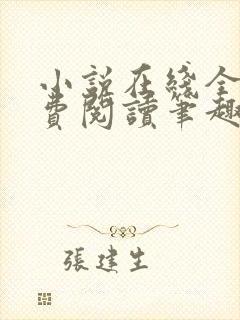 小説在綫全
費閱讀筆趣
張建生